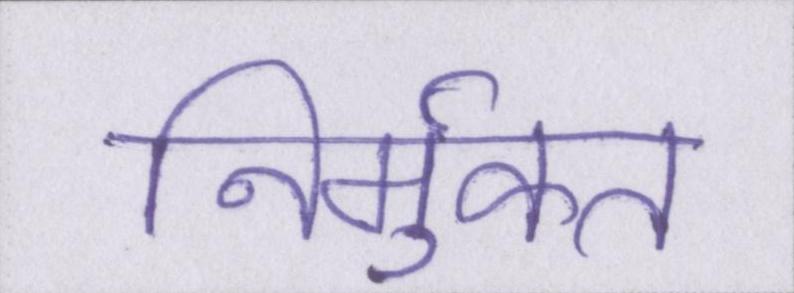 निर्मुक्त